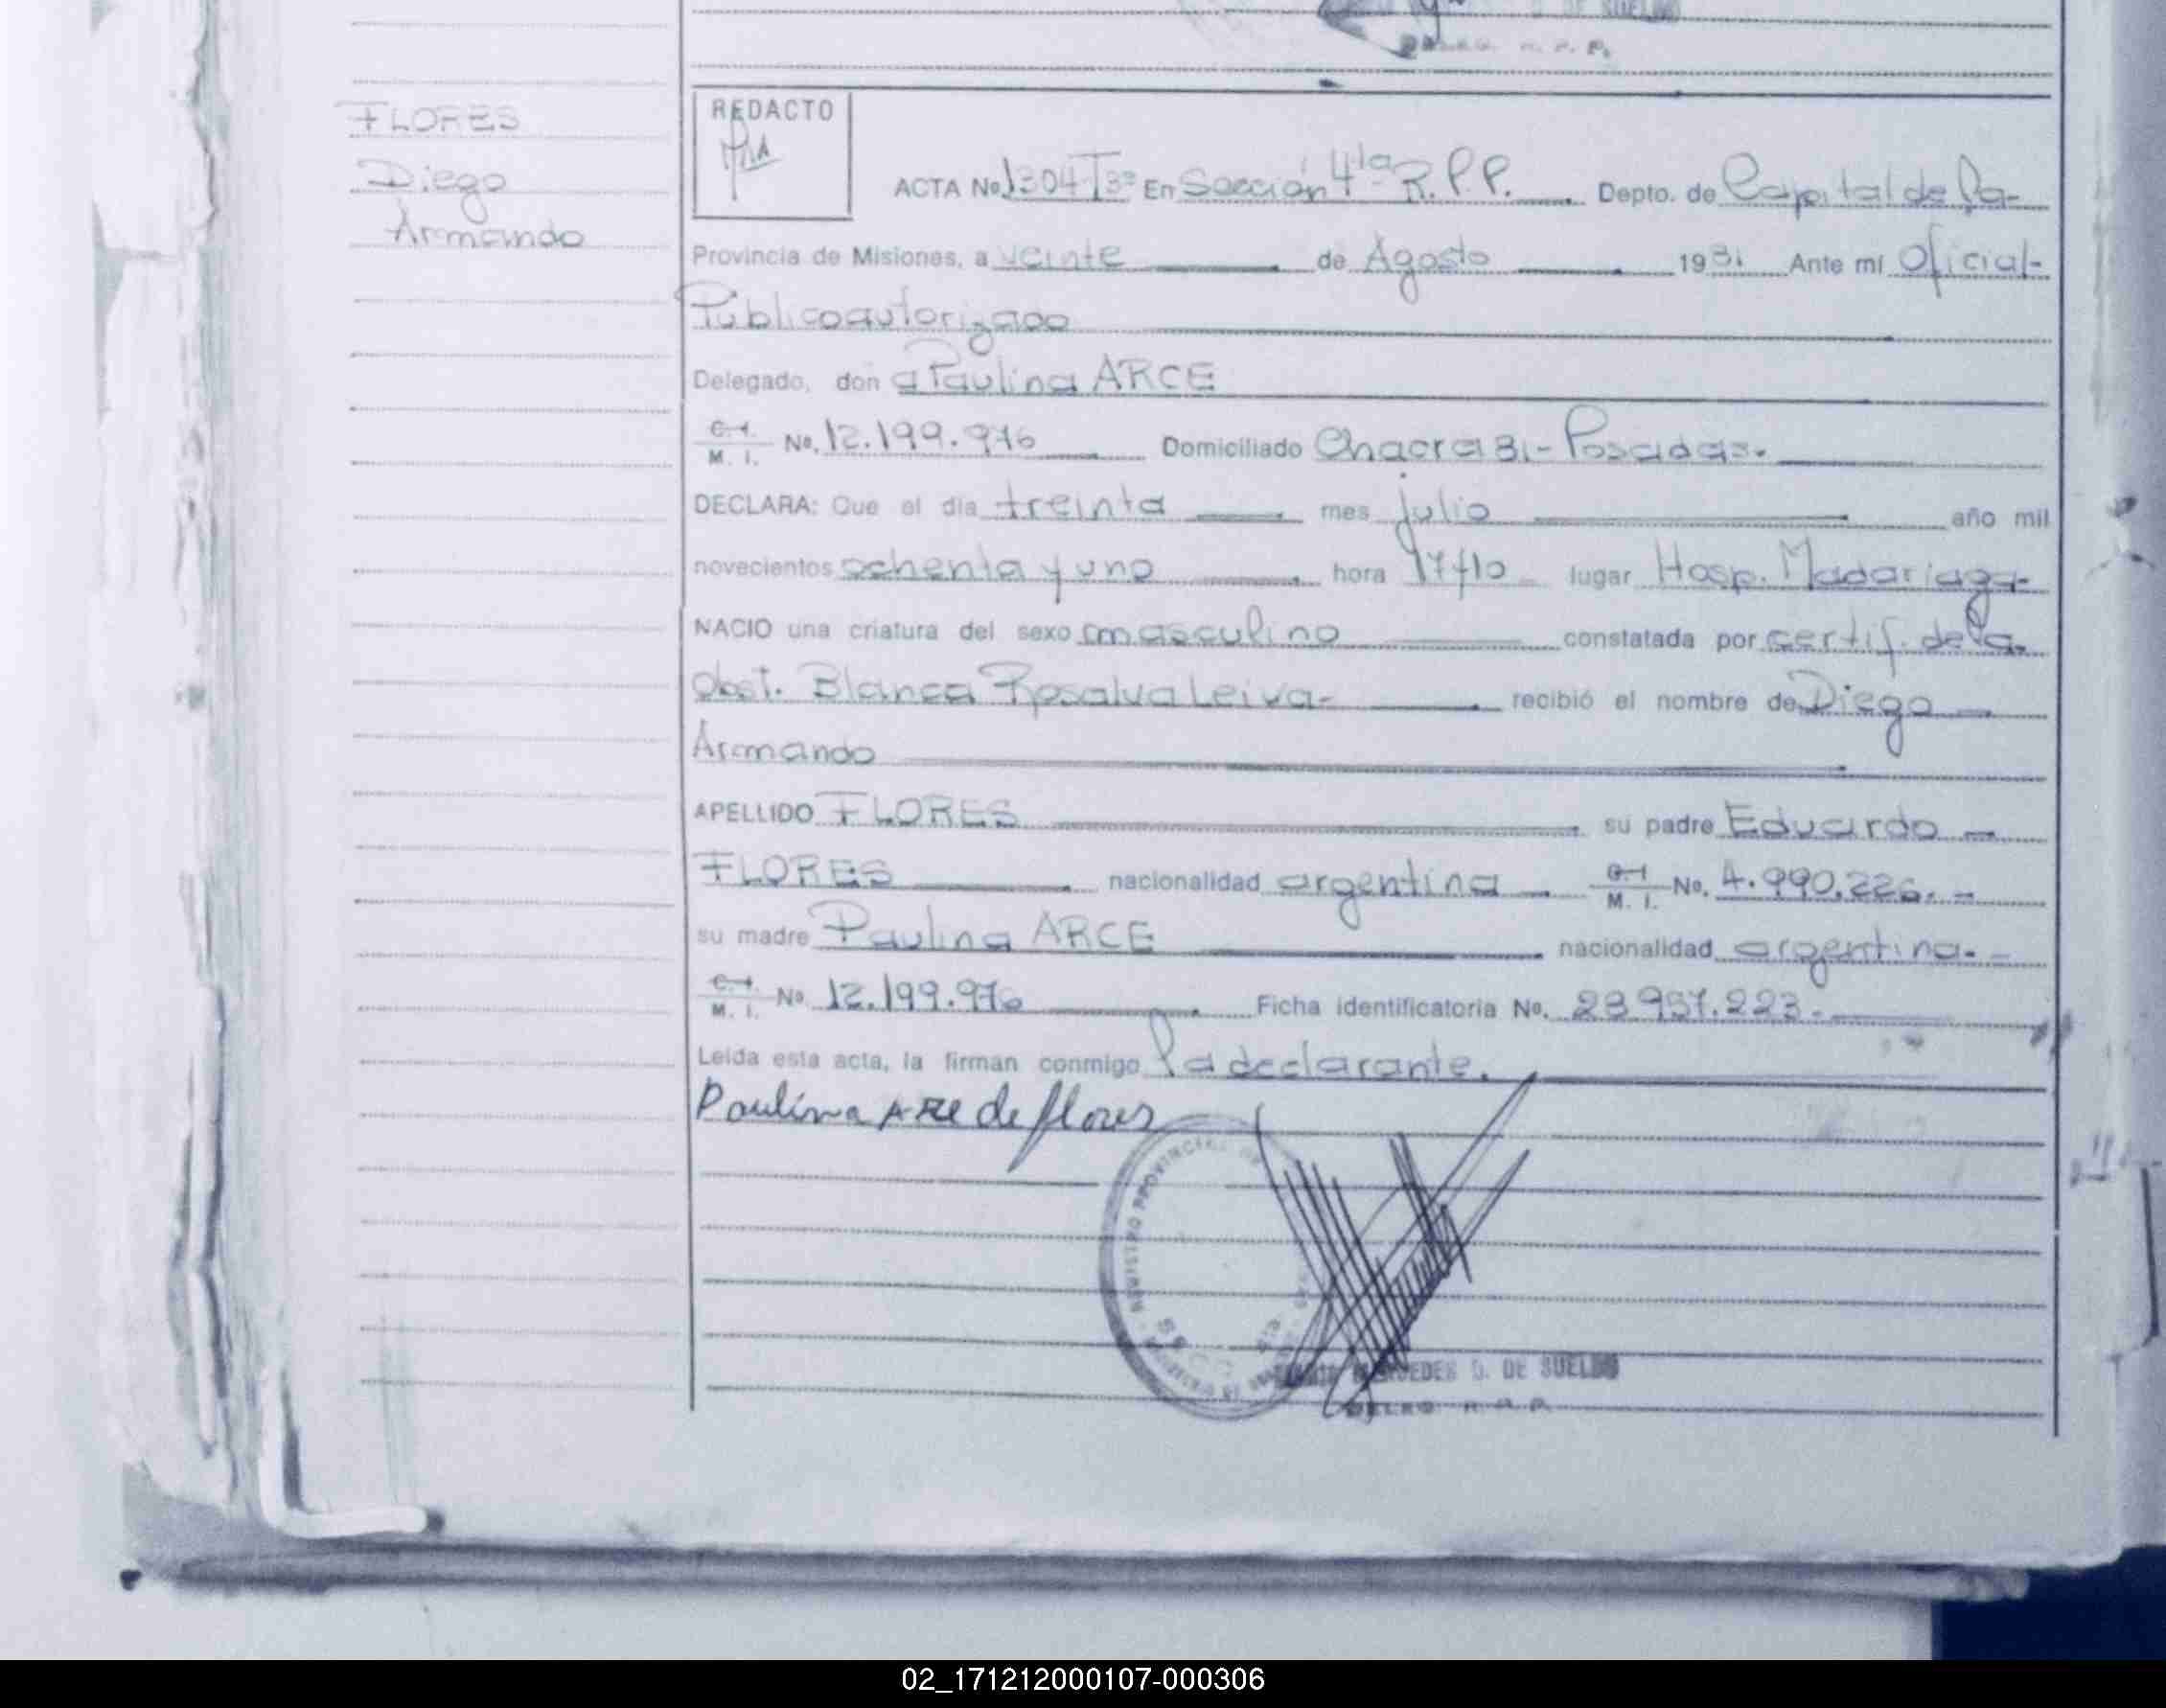 D. DE SUELDO
FLORES
Diego
Armando
REDACTO
ACTA No 1304 Tº3º En Sección 4ta R.P.P. Depto. de Capital de la-
Provincia de Misiones, a veinte de Agosto 1981 Ante mi Oficial-
Público autorizado
Delegado, don a Paulina ARCE
C. I.
M. I. No. 12.199.976 Domiciliado Chacra 81-Posadas.
DECLARA: Que el día treinta mes julio año mil
novecientos ochenta y uno hora 17/10 lugar Hosp. Madariaga-
NACIO una criatura del sexo masculino constatada por certif. de la
Obst. Blanca Rosalva Leiva- recibió el nombre de Diego
Armando
APELLIDO FLORES su padre Eduardo
FLORES nacionalidad argentina C. I.
M. I. No. 4.990.226.-
su madre Paulina ARCE nacionalidad argentina.-
C. I.
M. I. No 12.199.976 Ficha identificatoria No. 28.957.223.-
Leída esta acta, la firman conmigo la declarante.
Paulina ARCE de flores
REGISTRO PROVINCIAL DE
SECC. 4ta
MERCEDES D. DE SUELDO
02_171212000107-000306